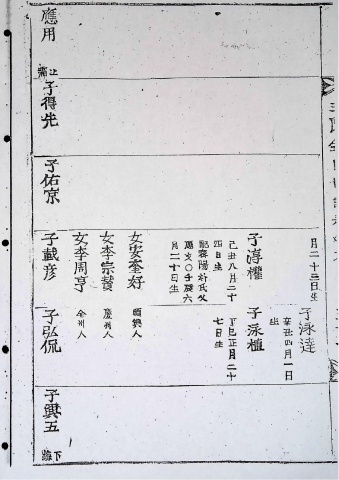 應用
子得先
子佑京
月二十三日生
子淳權
己丑八月二十
四日生
氏父
月二十日生
女安奎好
女李宗贊
女李周亨
子載彦
子泳達
辛丑四月一日
生
子泳植
丁巳正月二十
七日生
順興人
慶州人
全州人
子弘侃
子興五
下